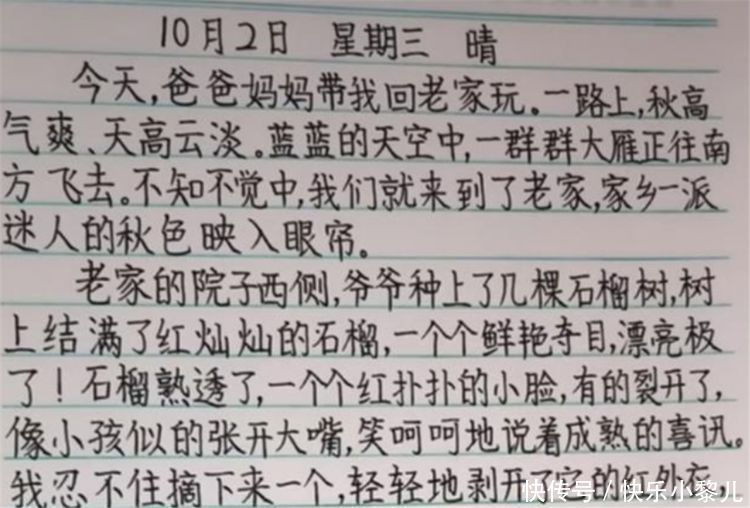 10月2日 星期三 晴
今天,爸爸妈妈带我回老家玩。一路上,秋高
气爽、天高云淡。蓝蓝的天空中,一群群大雁正往南
方飞去。不知不觉中,我们就来到了老家,家乡一派
迷人的秋色映入眼帘。
老家的院子西侧,爷爷种上了几棵石榴树,树
上结满了红灿灿的石榴,一个个鲜艳夺目,漂亮极
了!石榴熟透了,一个个红扑扑的小脸,有的裂开了,
像小孩似的张开大嘴,笑呵呵地说着成熟的喜讯。
我忍不住摘下来一个,轻轻地剥开了它的红外衣
快传号/快乐小黎儿